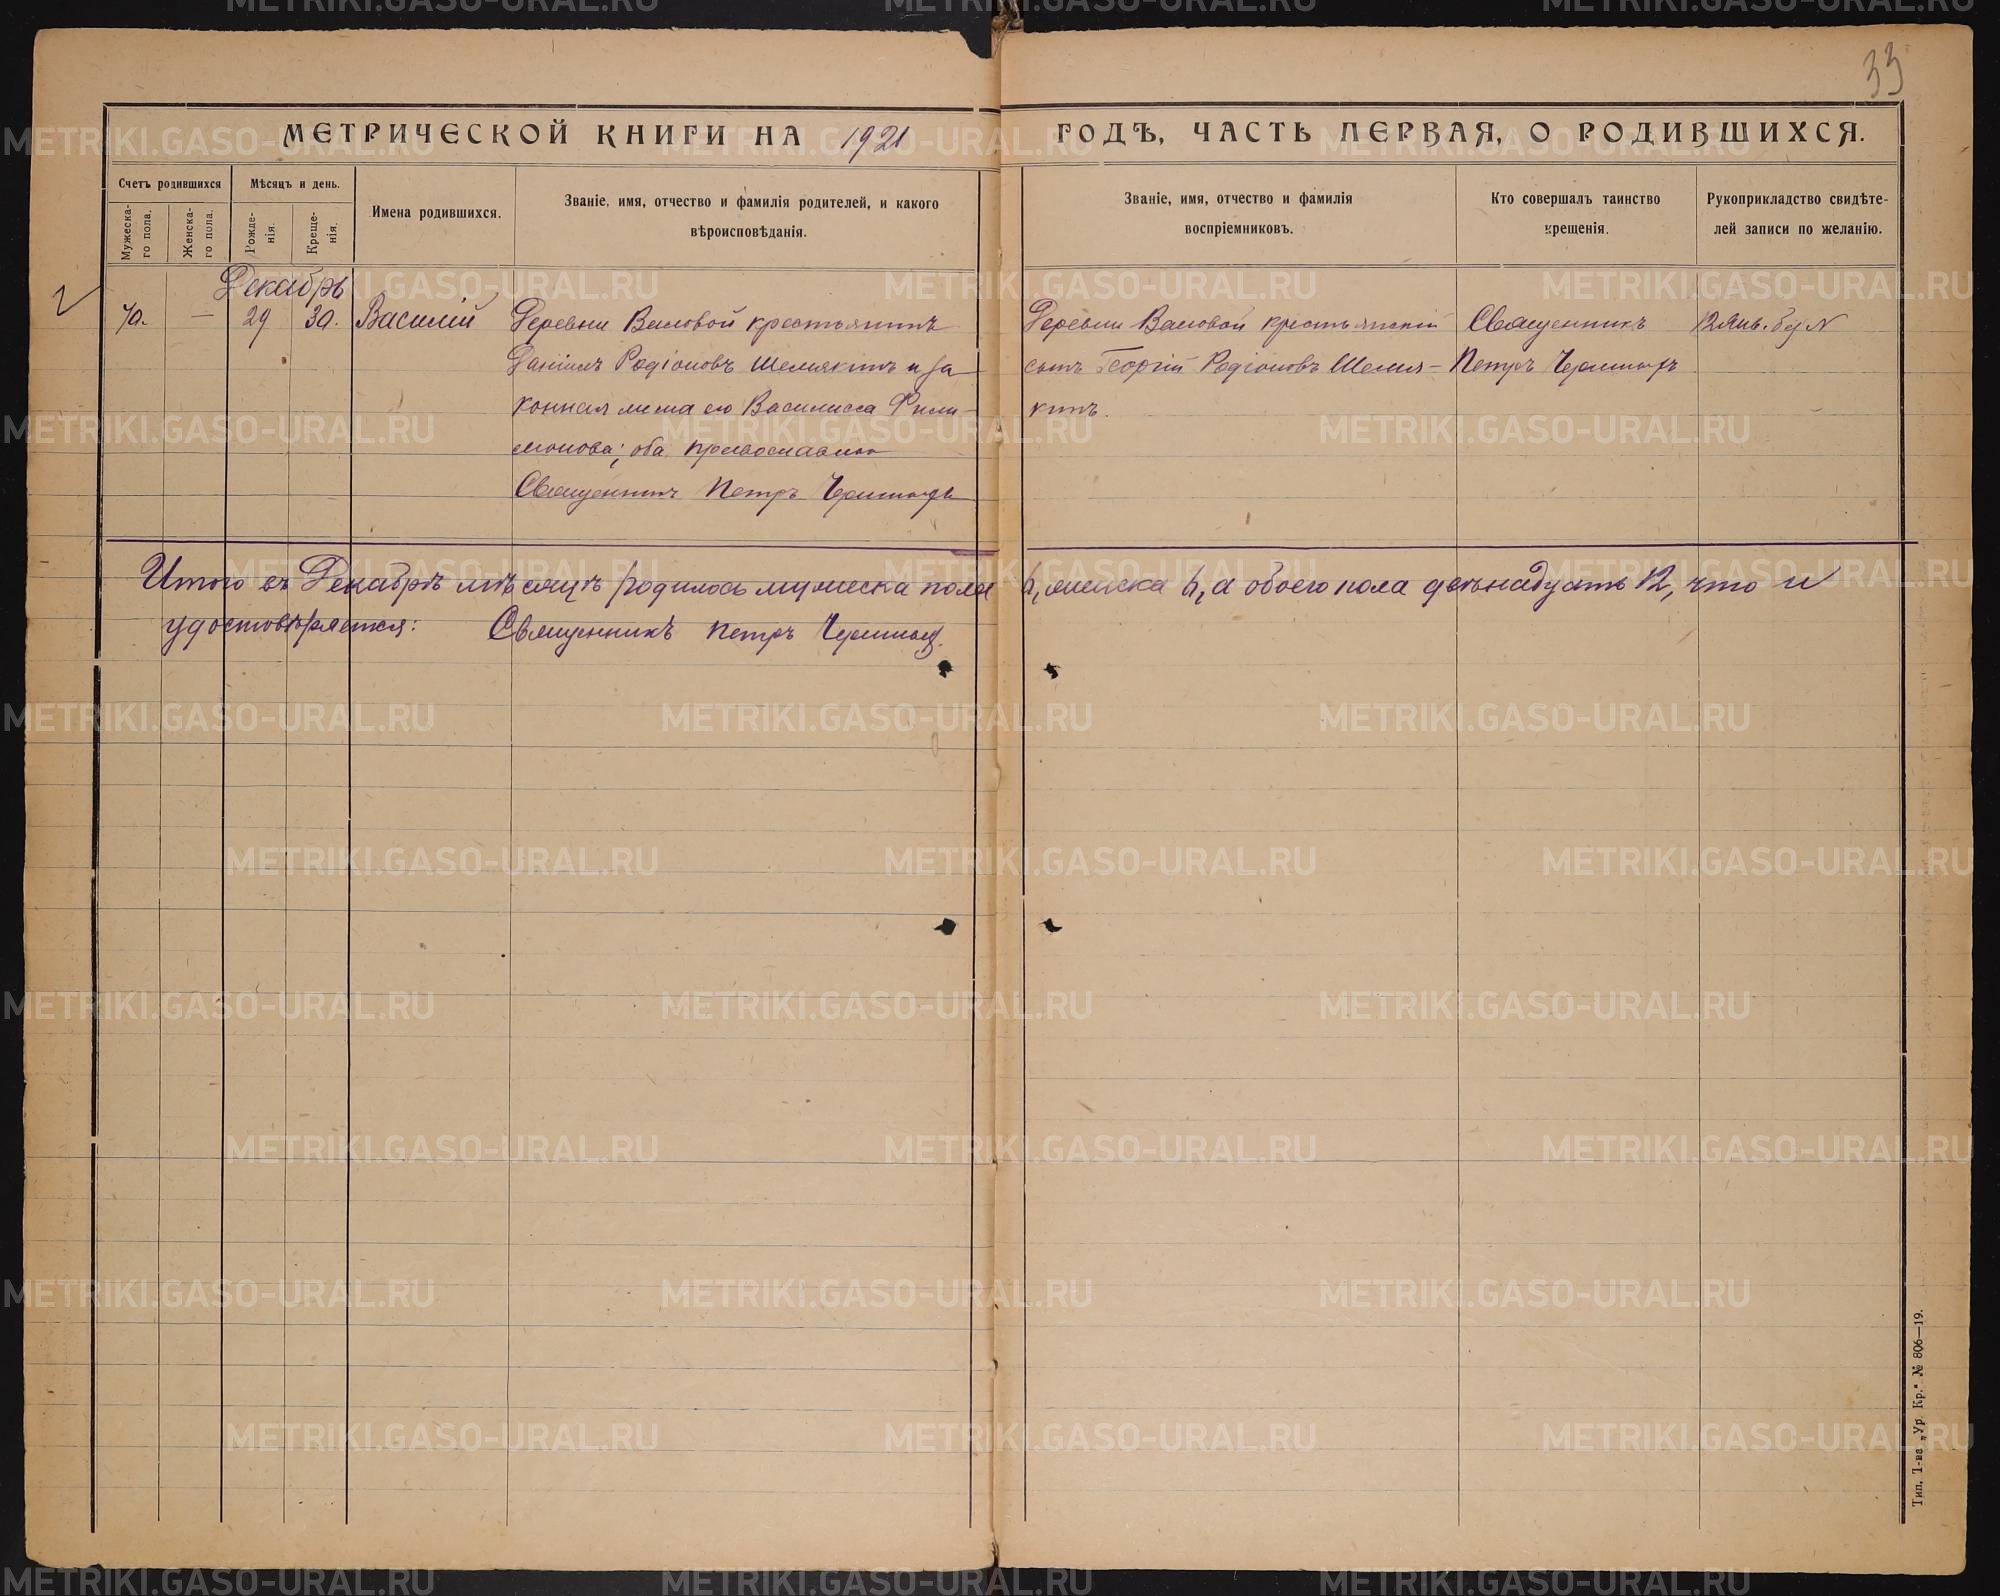 33
МЕТРИЧЕСКОЙ КНИГИ НА 1921 ГОДЪ, ЧАСТЬ ПЕРВАЯ, О РОДИВШИХСЯ.
Счетъ родившихся
Мужеска-го пола.
Женска-го пола.
Мѣсяцъ и день.
Рожде-нія.
Креще-нія.
Имена родившихся.
Званіе, имя, отчество и фамилія родителей, и какого
вѣроисповѣданія.
Званіе, имя, отчество и фамилія
воспріемниковъ.
Кто совершалъ таинство
крещенія.
Рукоприкладство свидѣте-
лей записи по желанію.
Декабрь
70. — 29 30. Василій
Деревни Валовой крестьянинъ
Даніилъ Родіоновъ Шемякинъ и за
конная жена его Василисса Фили-
монова; оба православные
Священникъ Петръ
Деревни Валовой крестьянскій
сынъ Георгій Родіоновъ Шемя-
кинъ.
Священникъ
Петръ
12 Янв.
Итого въ Декабрѣ мѣсяцѣ родилось мужеска пола 6, женска 6, а обоего пола двѣнадцать 12, что и
удостовѣряется: Священникъ Петръ
Тип. Т-ва „Ур. Кр.“ № 806—19.
METRIKI.GASO-URAL.RU